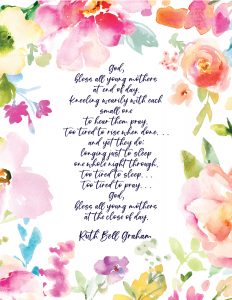 God,
bless all young mothers
at end of day.
Kneeling wearily with each
small one
to hear them pray.
Too tired to rise when done. . .
and yet they do;
longing just to sleep
one whole night through.
Too tired to sleep. . .
Too tired to pray. . .
God,
bless all young mothers
at the close of day.
Ruth Bell Graham